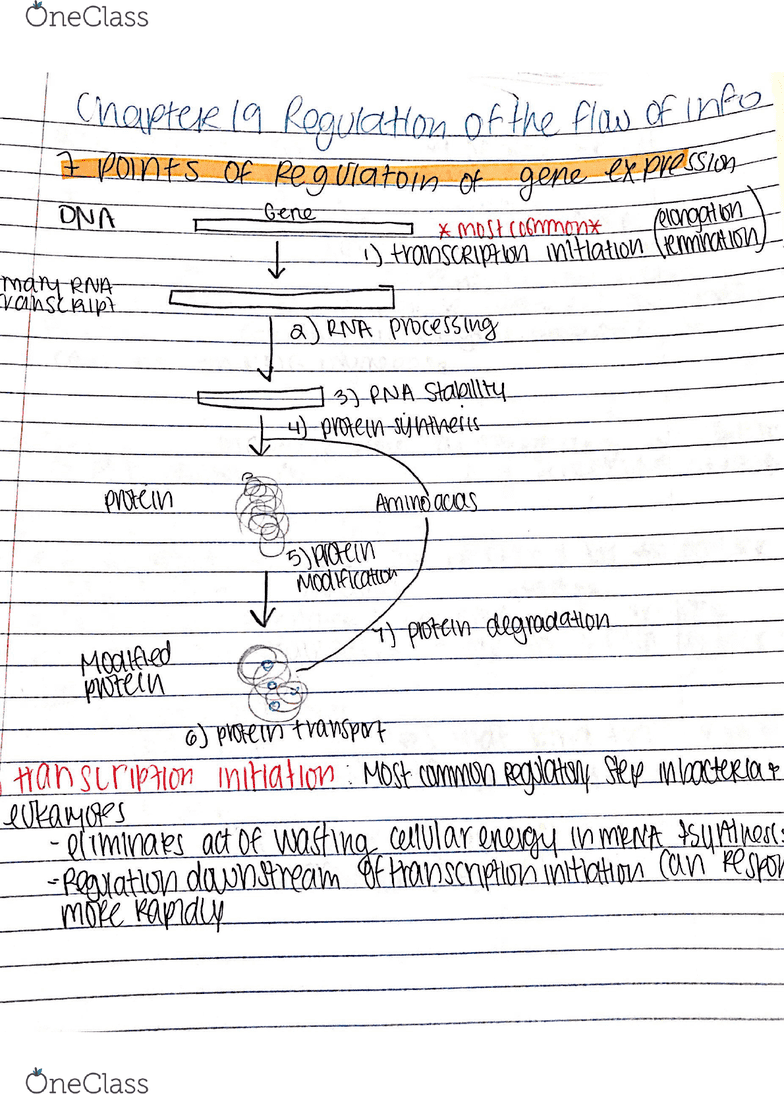 OneClass
Chapter 19 Regulation of the flow of info
7 points of Regulatoin of gene expression
DNA
Gene
*most common*
(elongation
termination)
1) transcription initiation
mary RNA
transcript
2) RNA processing
3) RNA Stability
4) protein synthesis
protein
Amino acids
5) protein
Modification
7) protein degradation
Modified
protein
6) protein transport
transcription initiation: Most common regulatory step in bacteria +
eukaryotes
- eliminates act of wasting cellular energy in mRNA
- Regulation downstream of transcription initiation can respon
more rapidly
OneClass